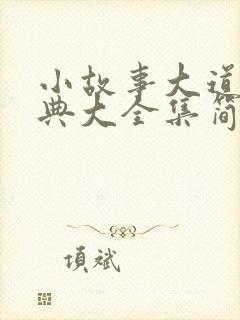 小故事大道
典大全集简
项斌